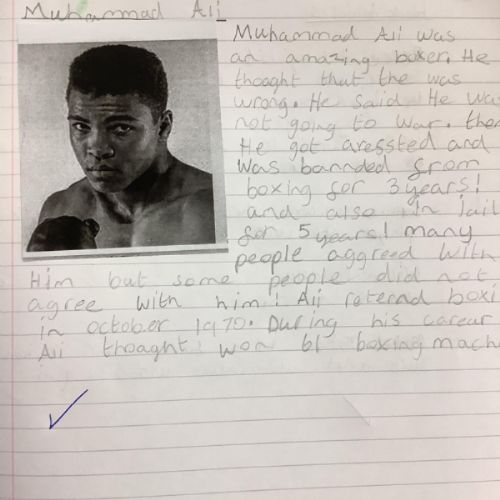 Muhammad Ali
Muhammad Ali was
an amazing boxer. He
thoaght that the was
wrong. He said He was
not going to war. then
He got aressted and
was bannded from
boxing for 3 years!
and also in jail
for 5 years! many
people aggreed with
Him but some people did not
agree with him! Ali reternd boxi
in october 1970. During his carear
Ali thoaght won 61 boxing mach